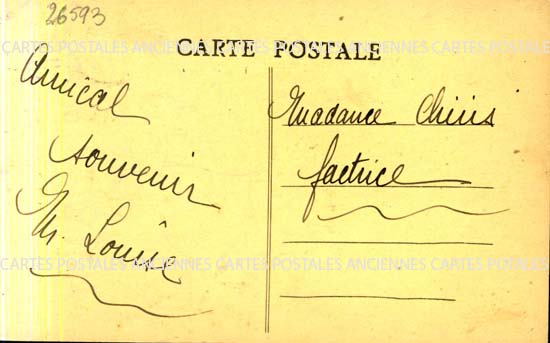 26593
CARTE POSTALE
CARTES POSTALES ANCIENNES CARTES POSTALES ANCIENNES CARTES POSTALES
Amical
souvenir
M. Louise
Madame
factrice
CARTES POSTALES ANCIENNES CARTES POSTALES ANCIENNES CARTES POSTALES